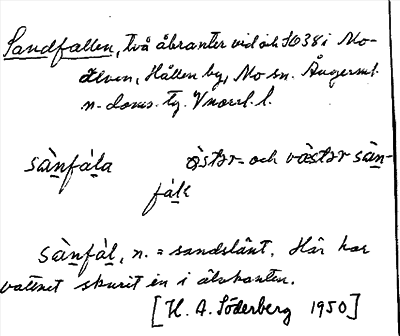 Sandfallen, två åbranter vid och SO 38 i Mo-
älven, Hållen by, Mo sn. Ångerml.
n. doms. tg. V norrl. l.
sànfála östər- och västər sàn-
fálɩ
sànfál, n. = sandslänt. Här har
vattnet skurit in i älvkanten.
[H. A. Söderberg 1950]